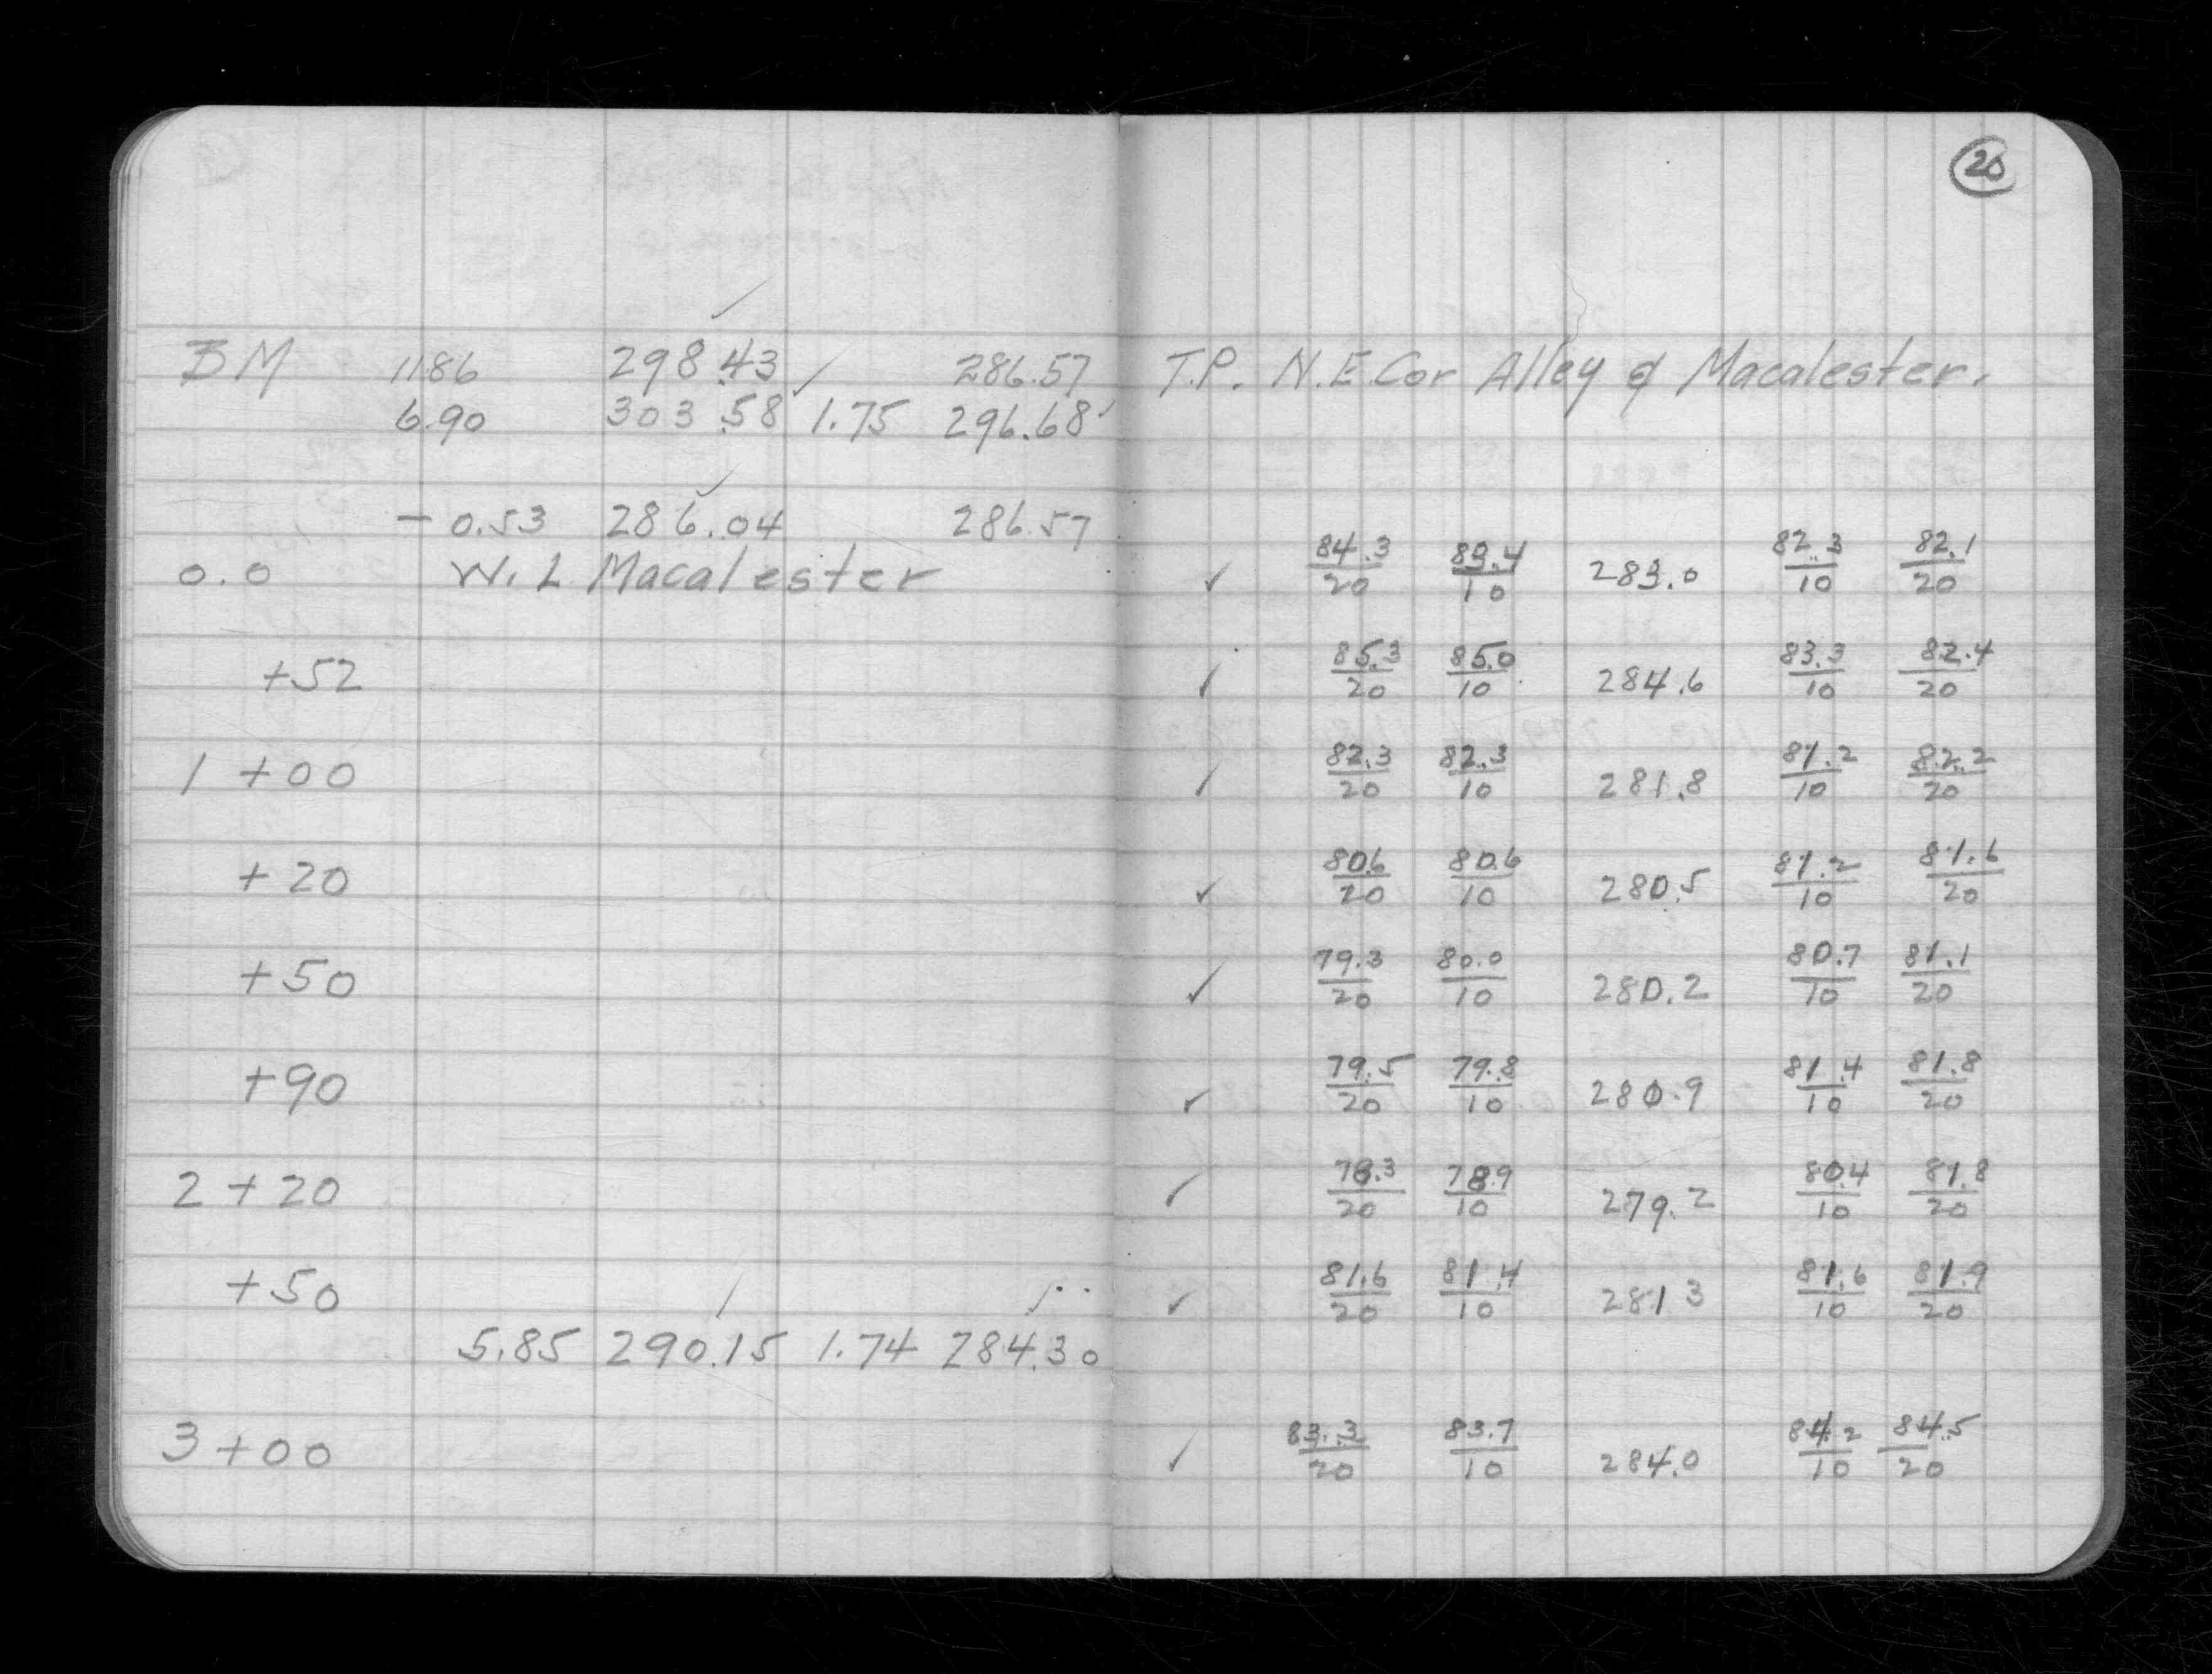 20
BM 11.86 298.43 286.57 T.P. N.E. Cor Alley & Macalester.
6.90 303.58 1.75 296.68
- 0.53 286.04 286.57
0.0 W. L Macalester ✓ 84.3/20 83.4/10 283.0 82.3/10 82.1/20
+52 ✓ 85.3/20 85.0/10 284.6 83.3/10 82.4/20
1 +00 ✓ 82.3/20 82.3/10 281.8 81.2/10 82.2/20
+20 ✓ 80.6/20 80.6/10 280.5 81.2/10 81.6/20
+50 ✓ 79.3/20 80.0/10 280.2 80.7/10 81.1/20
+90 ✓ 79.5/20 79.8/10 280.9 81.4/10 81.8/20
2 +20 ✓ 78.3/20 78.9/10 279.2 80.4/10 81.8/20
+50 ✓ 81.6/20 81.4/10 281 3 81.6/10 81.9/20
5.85 290.15 1.74 284.30
3 +00 ✓ 83.3/20 83.7/10 284.0 84.2/10 84.5/20